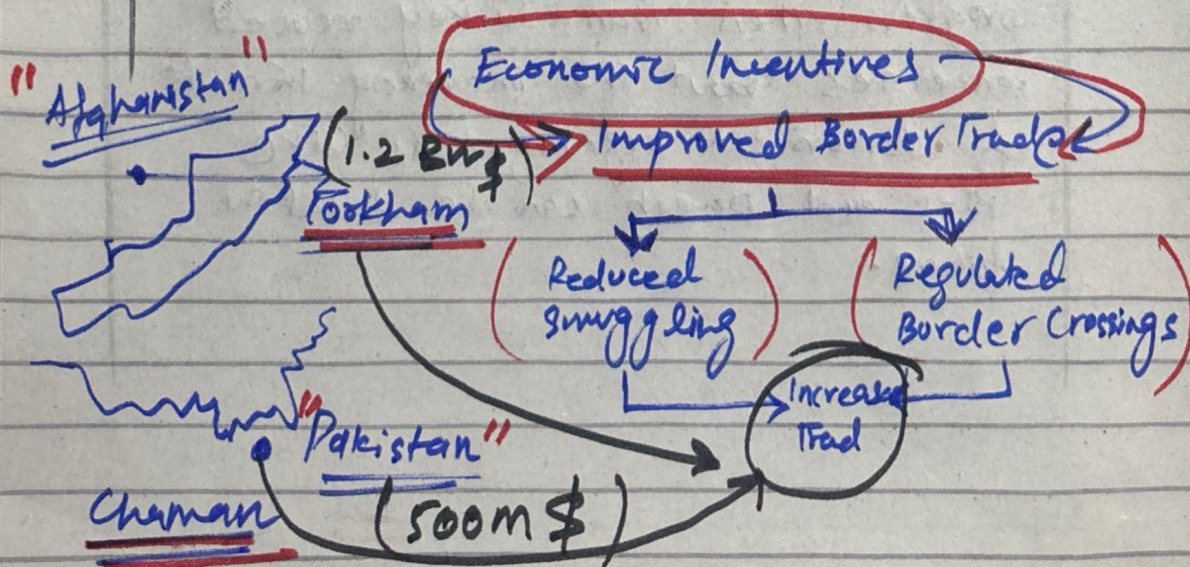 "Afghanistan"
Economic Incentives
(1.2 Bn $)
Improved Border Trade
Torkham
(Reduced
smuggling)
(Regulated
Border Crossings)
Increase
Trad
"Pakistan"
Chaman
(500m $)